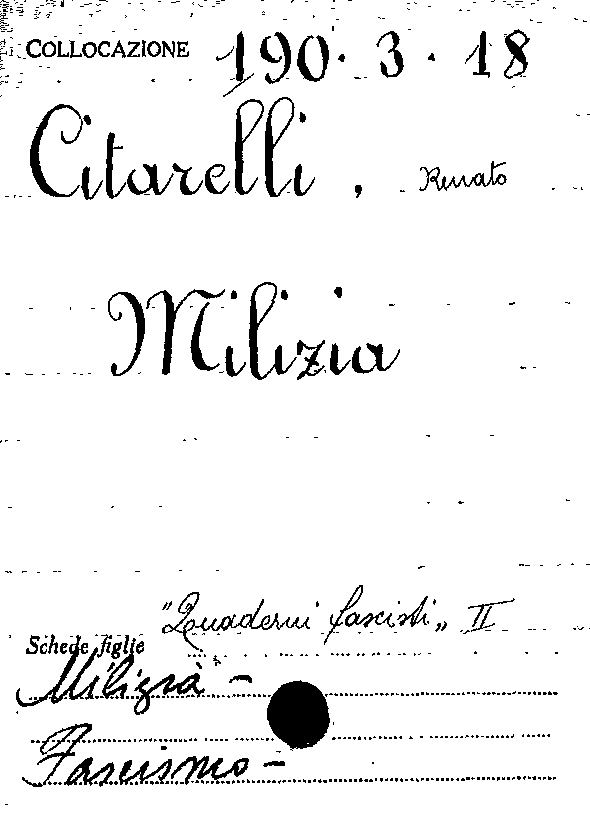 COLLOCAZIONE 190·3·18
Citarelli, Renato
Milizia
"Quaderni fascisti„ II
Schede figlie
Milizia -
Fascismo -